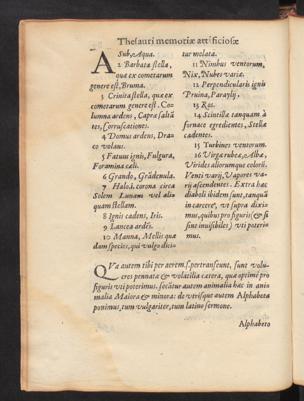 Thesauri memoriæ artificiosæ
A Sub, Aqua.
2 Barbata stella,
quæ ex cometarum
genere est, Bruma.
3 Crinita stella, quæ ex
cometarum genere est. Co
lumna ardens, Capra saltã
tes, Corruscationes.
4 Domus ardens, Dra
co volans.
5 Fatuus ignis, Fulgura,
Foramina cæli.
6 Grando, Grãdenula.
7 Halo. i. corona circa
Solem Lunam vel ali
quam stellam.
8 Ignis cadens, Iris.
9 Lancea ardẽs.
10 Manna, Mellis quæ
dam species, qui vulgo dici-
tur melata.
11 Nimbus ventorum,
Nix, Nubes variæ.
12 Perpendicularis ignis
Pruina,
13 Ros.
14 Scintillæ tanquam à
fornace egredientes, Stella
cadentes.
15 Turbines ventorum.
16 Virga rubea, Albæ,
Virides aliorumque coloris.
Venti varij, Vapores va-
rij ascendentes. Extra hac
diaboli ibidem sunt, tanquã
in carcere, vt supra dixi-
mus, quibus pro figuris (& si
sint inuisibiles) vti poteri-
mus.
QVæ autem tibi per aerem, spertranseunt, sunt volu-
cres pennata & volatilia cætera, quæ optimè pro
figuris vti poterimus. secũtur autem animalia hæc in ani
malia Maiora & minora: de vtrisque autem Alphabeta
ponimus, tum vulgariter, tum latino sermone.
Alphabeto